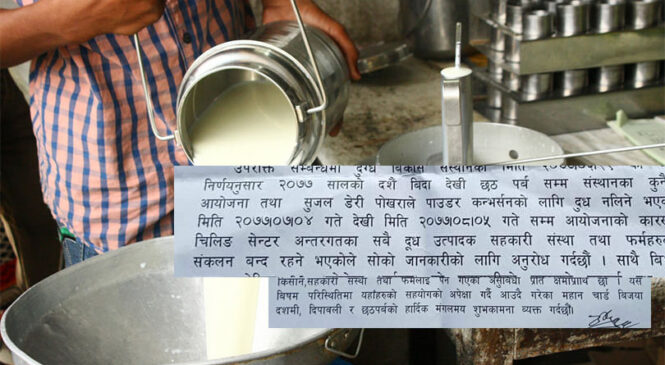 उपरोक्त सम्बन्धमा दुग्ध विकास संस्थानको मिति
निर्णयनुसार २०७७ सालको दशै बिदा देखी छठ पर्व सम्म संस्थानका कुनै
आयोजना तथा सुजल डेरी पोखराले पाउडर कन्भर्सनको लागि दुध नलिने भएको
मिति २०७७।०७।०४ गते देखी मिति २०७७।०८।०५ गते सम्म आयोजनाको कार
चिलिङ सेन्टर अन्तरगतका सबै दूध उत्पादक सहकारी संस्था तथा फर्महरु
संकलन बन्द रहने भएकोले सोको जानकारीको लागि अनुरोध गर्दछौं । साथै बि
किसान, सहकारी संस्था तथा फर्मलाई पर्न गएको असुविधा प्रति क्षमाप्रार्थी छौं । यस
बिषम परिस्थितिमा यहाँहरुको सहयोगको अपेक्षा गर्दै आउदै गरेका महान चार्ड बिजया
दशमी, दिपावली र छठपर्वको हार्दिक मंगलमय शुभकामना ब्यक्त गर्दछौं।